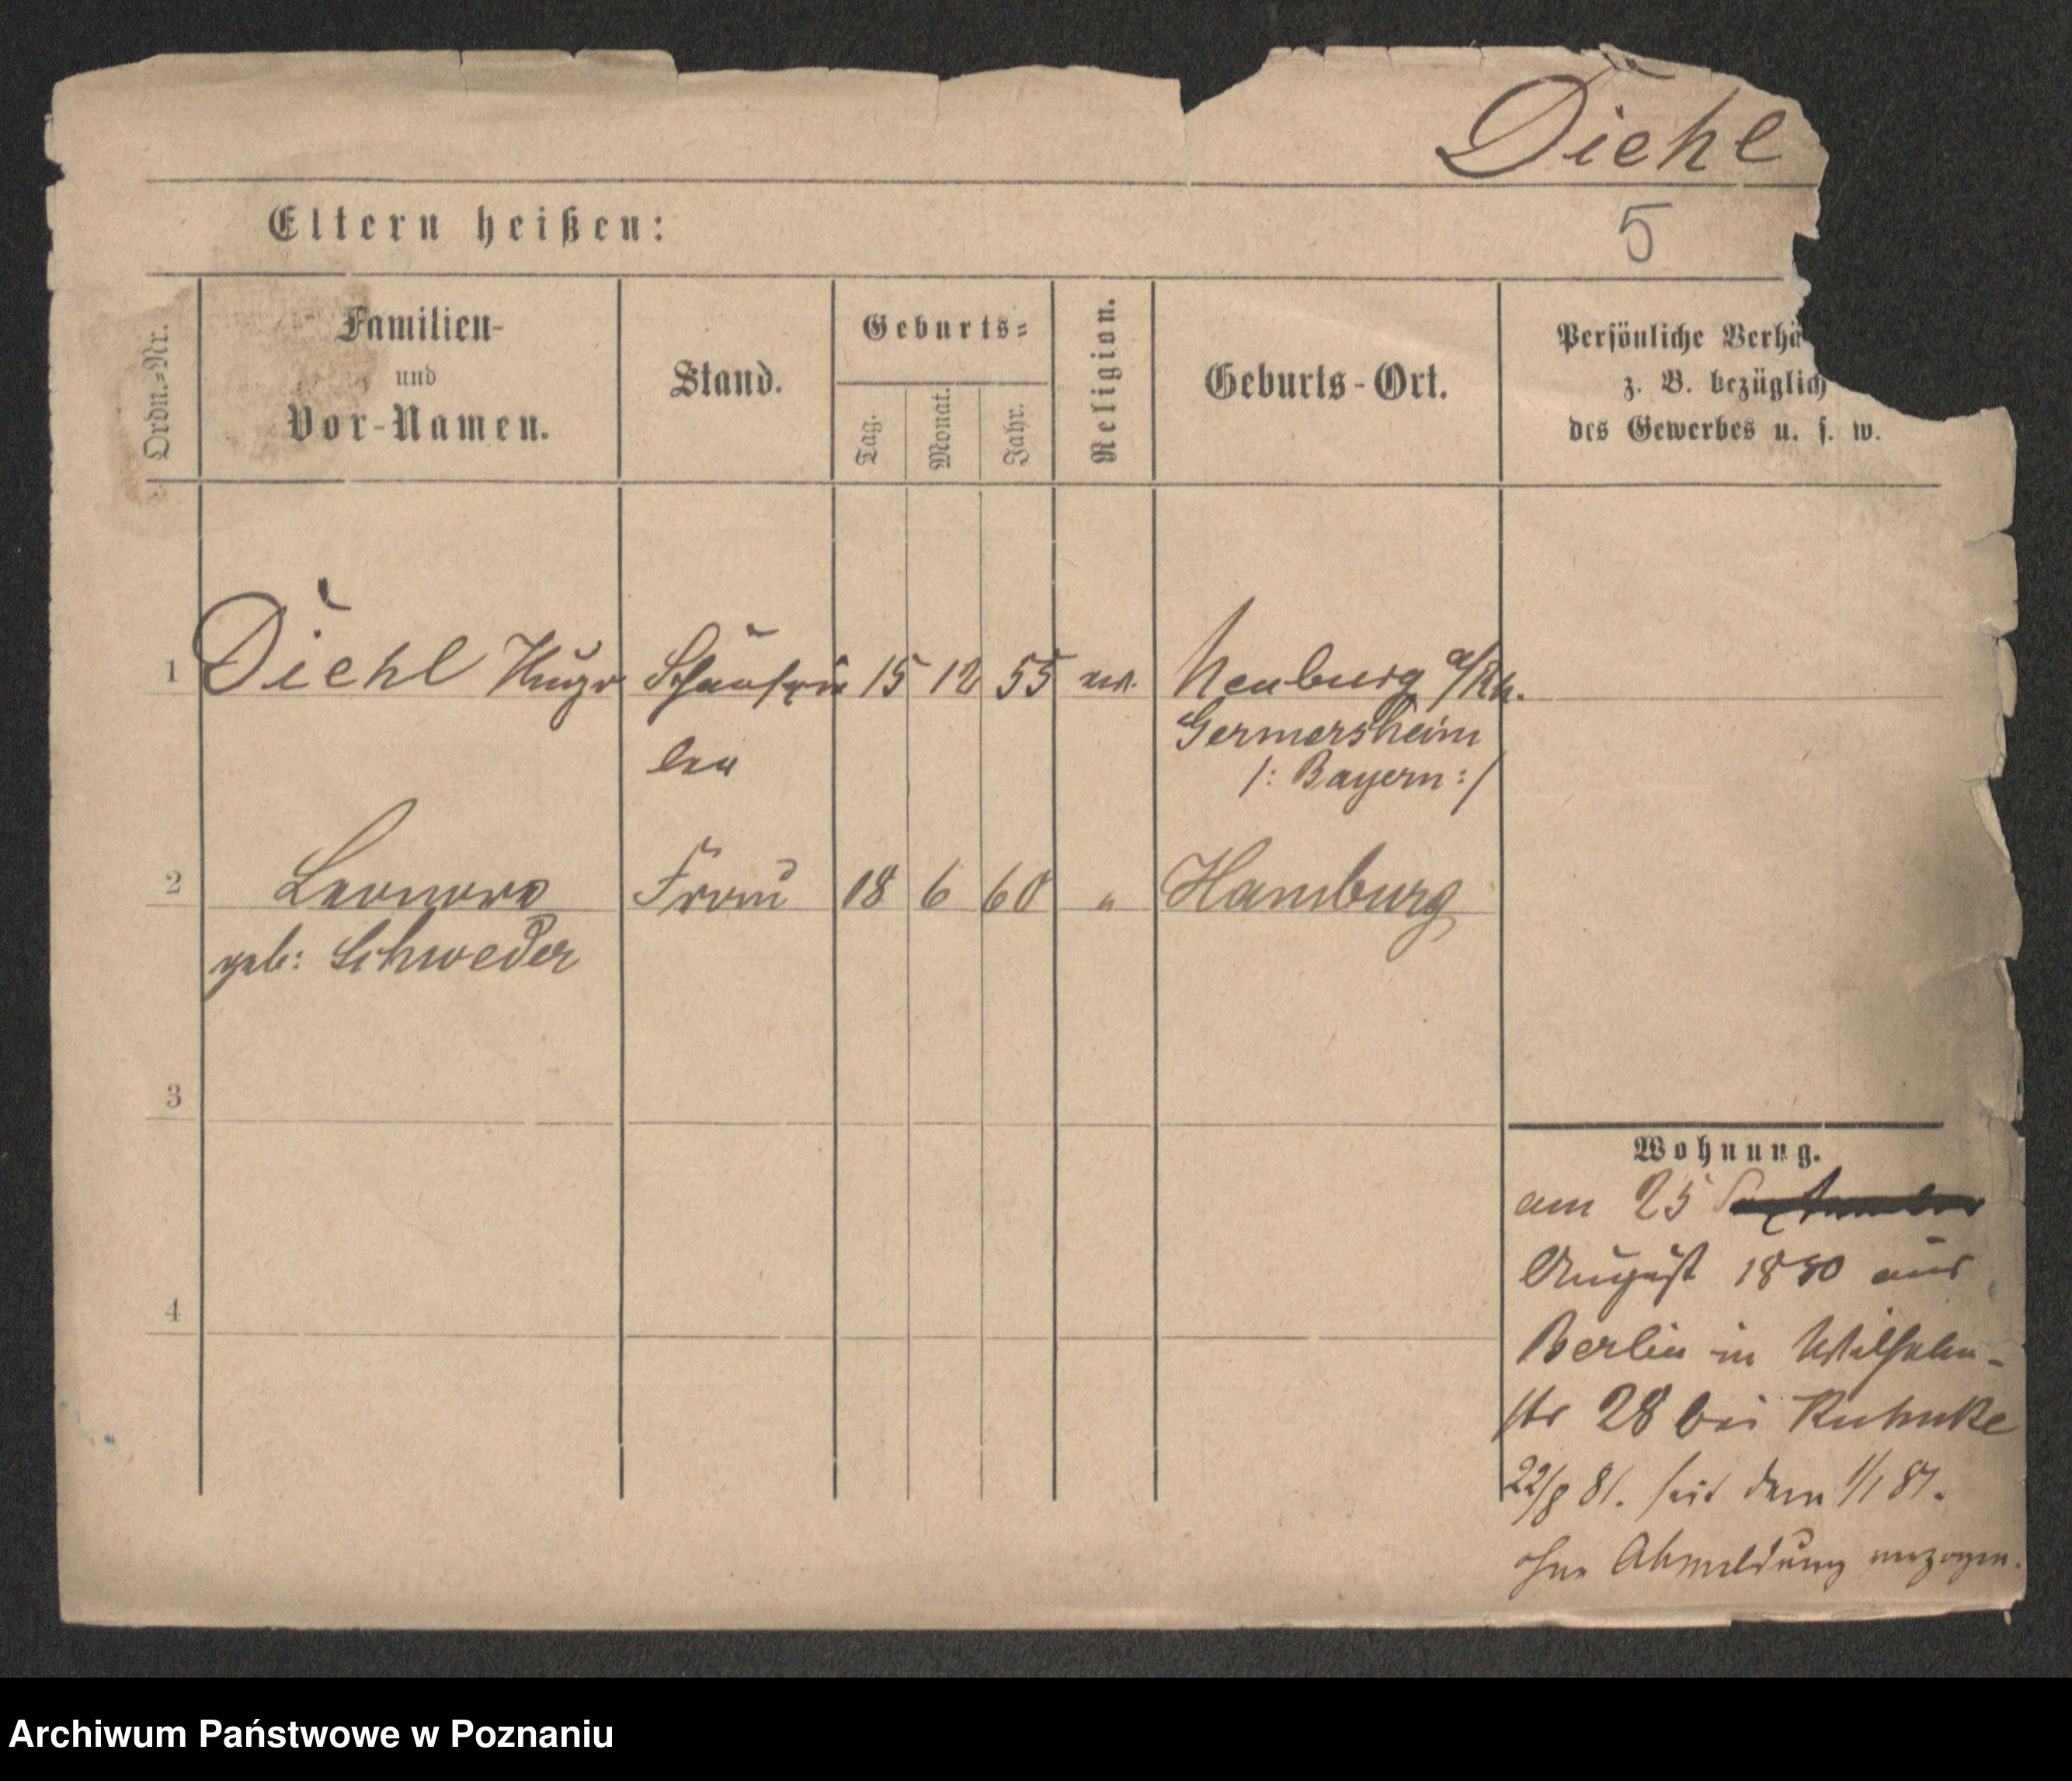 Diehl
Eltern heißen:
5
Ordn.=Nr.
Familien-
und
Vor-Namen.
Stand.
Geburts=
Tag.
Monat.
Jahr.
Religion.
Geburts-Ort.
Persönliche Verhä
z. B. bezüglich
des Gewerbes u. s. w.
1 Diehl Hugo Schauspie 15 12 55 ev. Neuburg a/Rh.
ler Germersheim
/: Bayern :/
2 Leonore Frau 18 6 60 " Hamburg
geb: Schweder
3
4
Wohnung.
am 25 September
August 1880 aus
Berlin in Wilhelm-
str 28 bei Kuhnke
22/8 81. seit dem 1/1 81.
ohne Abmeldung verzogen.
Archiwum Państwowe w Poznaniu